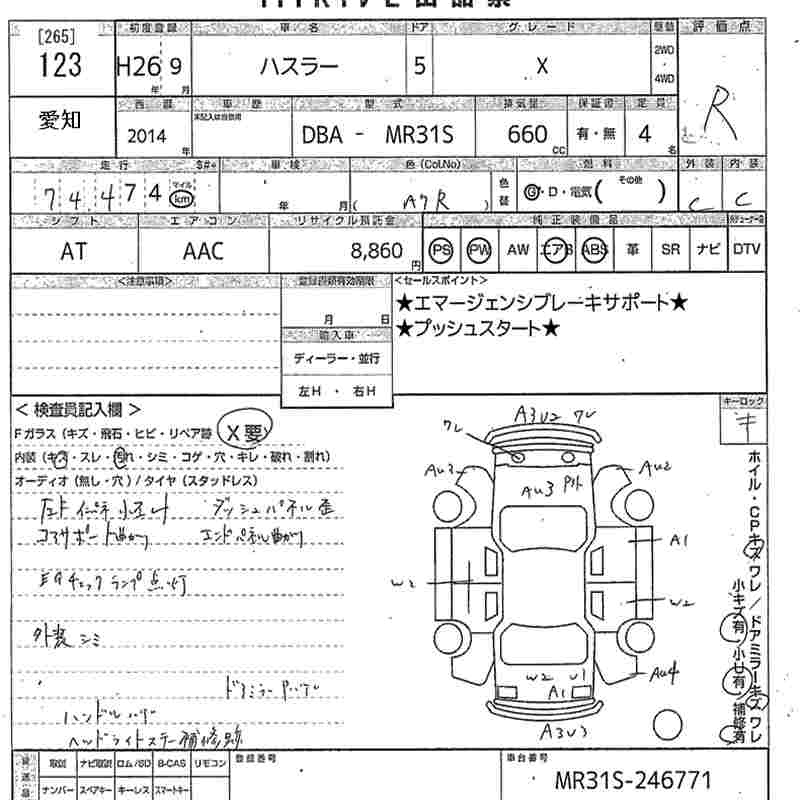 [265]
123
初度登録
車名
ドア
グレード
駆動
評価点
H26 9
年 月
ハスラー
5
X
2WD
4WD
R
愛知
西暦
車歴
型式
排気量
保証書
定員
2014
年
未記入は自家用
DBA - MR31S
660
CC
有・無
4
名
走行
車検
色(Col.No)
色替
燃料
外装
内装
74,474
マイル
km
年 月
( A7R )
G・D・電気( その他 )
C
C
シフト
エアコン
リサイクル預託金
純正装備品
AT
AAC
8,860
円
PS PW AW エアB ABS 革 SR ナビ DTV
<注意事項>
登録書類有効期限
<セールスポイント>
月 日
★エマージェンシブレーキサポート★
★プッシュスタート★
輸入車
ディーラー・並行
左H・右H
<検査員記入欄>
キーロック
キ
Fガラス(キズ・飛石・ヒビ・リペア跡 X要)
内装(キズ・スレ・汚れ・シミ・コゲ・穴・キレ・破れ・割れ)
オーディオ(無し・穴)/タイヤ(スタッドレス)
ダッシュパネル歪
コアサポート曲がり エンドパネル曲がり
チェックランプ点灯
外装シミ
ハンドル
ヘッドライトステー補修跡
A3U2 ワレ
ワレ
AU3
AU2
A1
W2
W2
AU4
W2 U1
A1
A3U3
ホイル・CPキズワレ/ドアミラーキズワレ
小キズ有・小U有・補修有
取説 ナビ取説 ロム/SD B-CAS リモコン
ナンバー スペアキー キーレス スマートキー
登録番号
車台番号
MR31S-246771